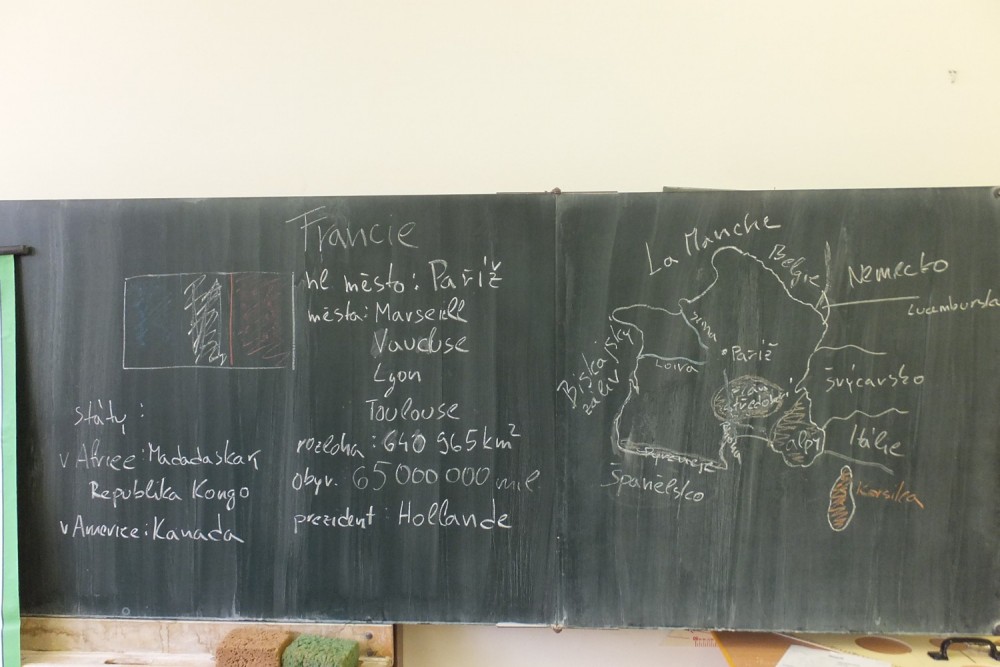 Francie
hl město: Paříž
města: Marseill
Vaucluse
Lyon
Toulouse
rozloha: 640 965 km²
obyv. 65 000 000 mil
prezident: Hollande
státy:
v Africe: Madadaskar
Republika Kongo
v Americe: Kanada
La Manche
Belgie
Německo
Lucembursko
Seina
Paříž
Loira
Biskajský
záliv
Švýcarsko
středohoří
alpy
Itálie
Pyreneje
Španělsko
Korsika